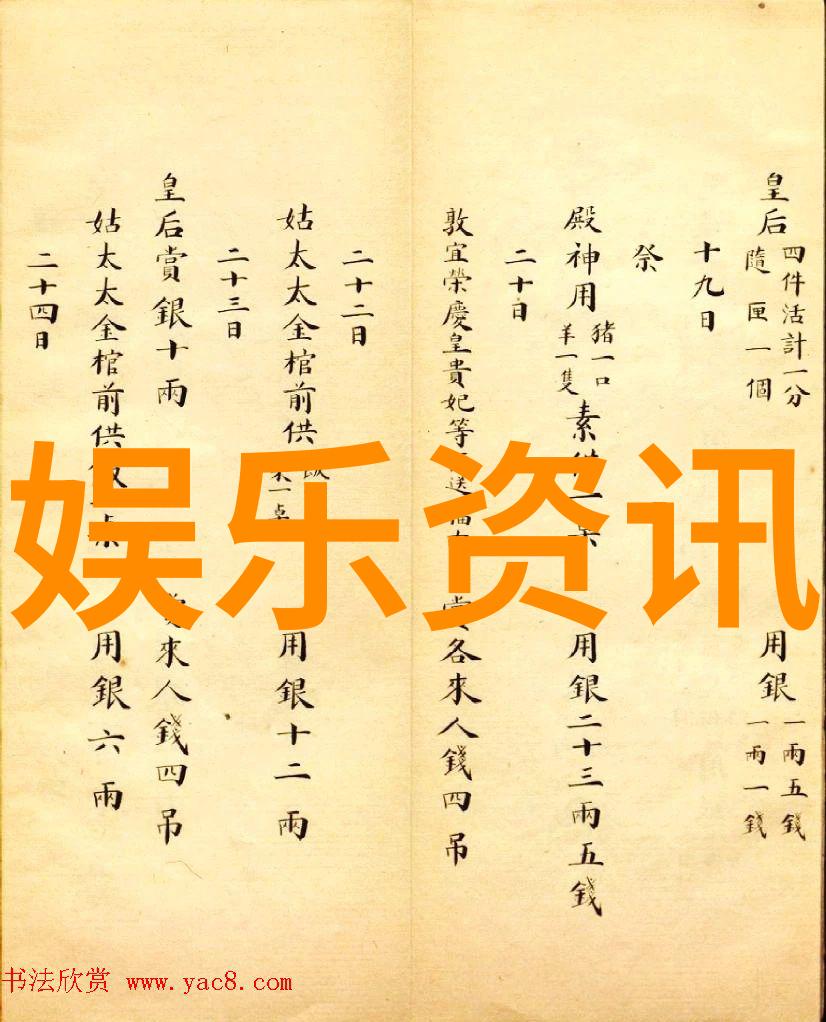 皇后 四件活計一分 隨匣一個 用銀 一兩五錢 一兩一錢
十九日
祭
殿神用 猪一口 羊一隻 素供一桌 用銀二十三兩五錢
二十日
敦宜榮慶皇貴妃等 送 賞各來人錢四吊
二十二日
姑太太金棺前供 一桌 用銀十二兩
二十三日
皇后賞銀十兩 賞來人錢四吊
姑太太金棺前供飯一桌 用銀六兩
二十四日
娱乐资讯
书法欣赏 www.yac8.com